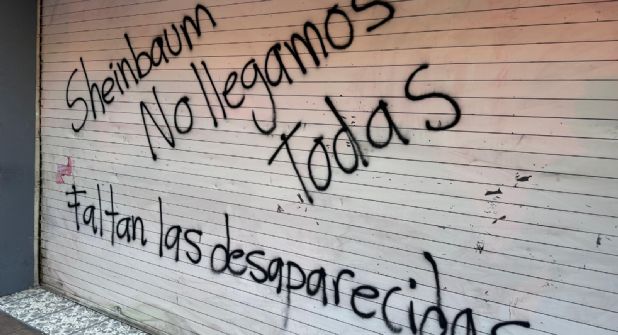 Sheinbaum
No llegamos
Todas
Faltan las desaparecidas